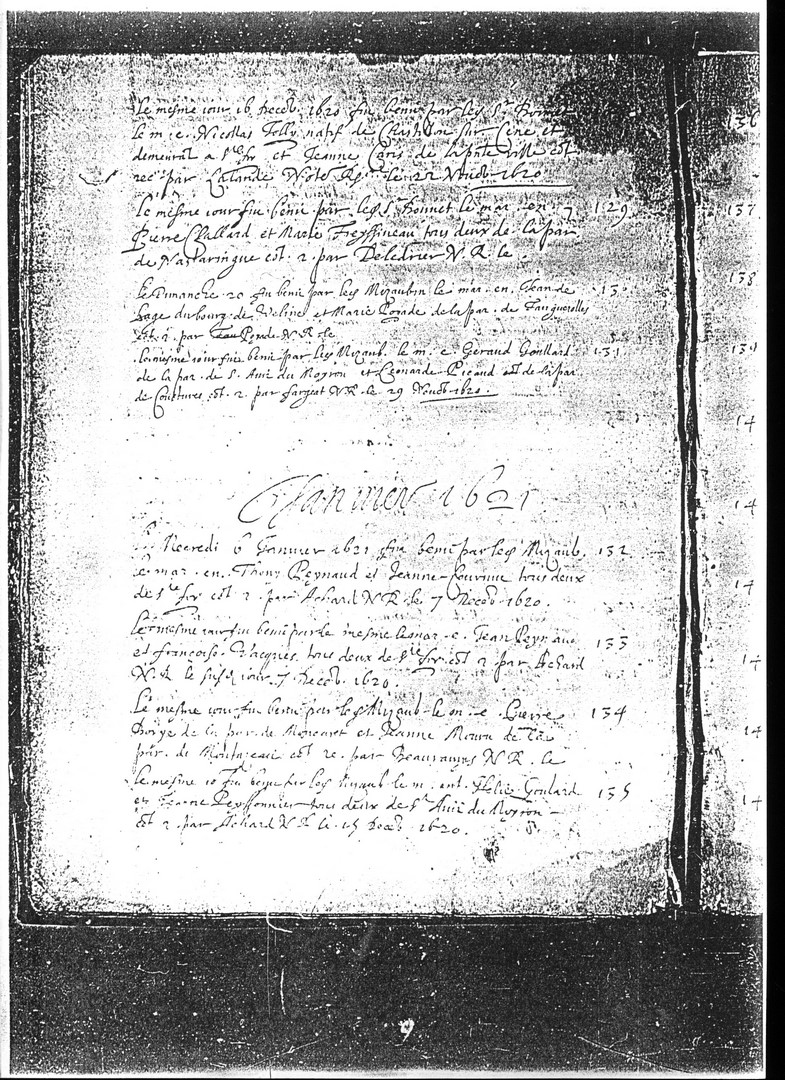 Le mesme iour 16 Deceb. 1620 fut benit par le sr Bonnet
le m. e. Nicollas Jolly natif de Chastilon sur et
demeurāt a Ste foy et Jeanne de la pnte ville est
rec par Lalande Note Rl le 22 Noueb 1620
Le mesme iour fut beni par le sr Bonnet le mar. en. 129
Pierre Challard et Marie Freyssineau tous deux de la par.
de Nastaringue cōt. 2. par Deledrier N R. le.
Le Dimanche 20 fu beni par le sr Mizaubin le mar. en. Jean de 13
sage du bourg de Veline et Marie Porade de la par. de Fauguerolles
cōt. r. par Jean Porade N R le
le mesme iour fut beni par le sr Mizaub. le m. e. Geraud Goullard 131
de la par. de S. Auit du Moyron et Leonarde Picaud de la par.
de Coutures cōt. 2. par fargeat N R. le 29 Nouēb. 1620.
Januier 1621
Mecredi 6 Januier 1621 fut beni par le sr Mizaub. 132
le mar. en. Thony Peynaud et Jeanne tous deux
de Ste foy cōt 2 par Achard N R le 7 Deceb 1620.
Le mesme iour fut beni par le mesme le mar. e. Jean Peynaud 133
et francoise Jacques tous deux de Ste foy cōt 2 par Achard
N R le susd iour 7 Deceb. 1620.
Le mesme iour fut beni par le sr Mizaub le m. e. Pierre 134
de la par. de Moncaret et Jeanne de la
par. de cōt re. par N R. le
le mesme io fu beni par le sr Mizaub le m. ent. Helie Goulard 135
et Jeanne Peyssonnier tous deux de St Auit du Moyron
cōt 2 par Achard N R le 15 Deceb 1620.
136
137
138
139
14
14
14
14
14
14